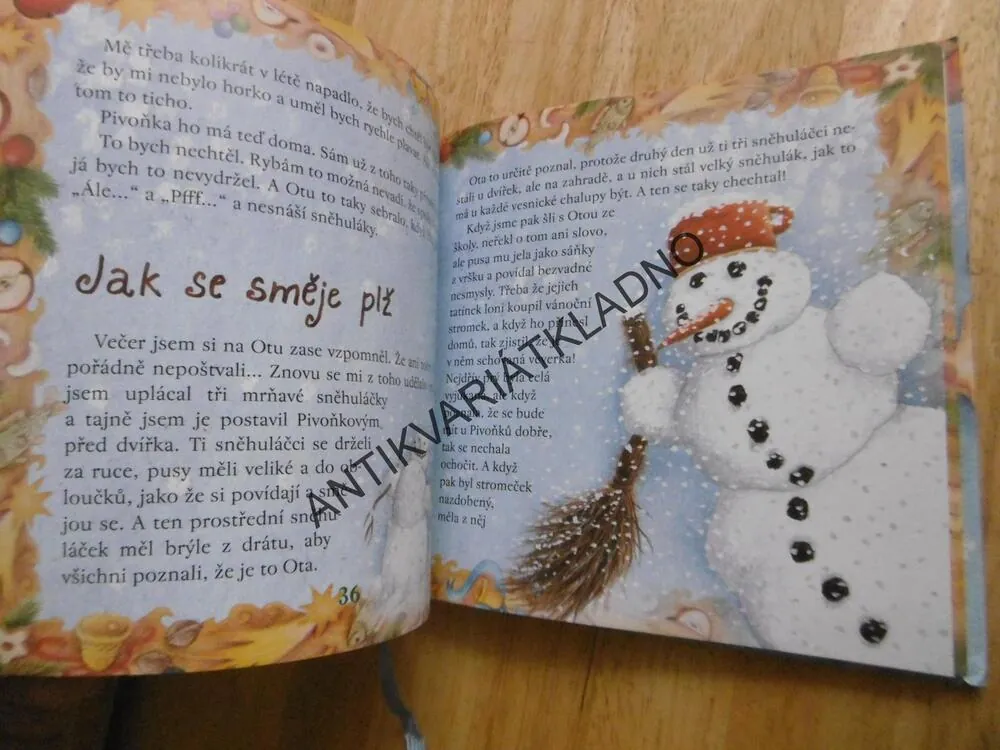 Mě třeba kolikrát v létě napadlo, že bych chtěl
že by mi nebylo horko a uměl bych rychle plavat.
tom to ticho.
Pivoňka ho má teď doma. Sám už z toho taky
To bych nechtěl. Rybám to možná nevadí, že
já bych to nevydržel. A Otu to taky sebralo, když
„Ále…“ a „Pfff…“ a nesnáší sněhuláky.
Jak se směje plž
Večer jsem si na Otu zase vzpomněl. Že ani
pořádně nepoštvali… Znovu se mi z toho udělalo
jsem uplácal tři mrňavé sněhuláčky
a tajně jsem je postavil Pivoňkovým
před dvířka. Ti sněhuláčci se drželi
za ruce, pusy měli veliké a do ob-
loučků, jako že si povídají a smě-
jou se. A ten prostřední sněhu-
láček měl brýle z drátu, aby
všichni poznali, že je to Ota.
36
Ota to určitě poznal, protože druhý den už ti tři sněhuláčci ne-
stáli u dvířek, ale na zahradě, a u nich stál velký sněhulák, jak to
má u každé vesnické chalupy být. A ten se taky chechtal!
Když jsme pak šli s Otou ze
školy, neřekl o tom ani slovo,
ale pusa mu jela jako sáňky
z vršku a povídal bezvadné
nesmysly. Třeba že jejich
tatínek loni koupil vánoční
stromek, a když ho přinesl
domů, tak zjistil, že je
v něm schovaná veverka!
Nejdřív prý byla celá
vyjukaná, ale když
poznala, že se bude
mít u Pivoňků dobře,
tak se nechala
ochočit. A když
pak byl stromeček
nazdobený,
měla z něj
ANTIKVARIÁTKLADNO